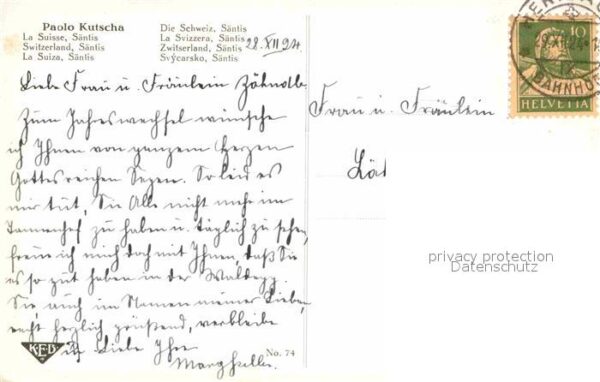 Paolo Kutscha
La Suisse, Säntis
Switzerland, Säntis
La Suiza, Säntis
Die Schweiz, Säntis
La Svizzera, Säntis
Zwitserland, Säntis
Svýcarsko, Säntis
28. XII 24
Liebe Frau u. Fräulein
Zum Jahreswechsel wünsche
ich Ihnen von ganzem Herzen
Gottes reichen Segen. So leid es
mir tut, Sie Alle nicht mehr im
Tannenhof zu haben u. täglich zu sehen,
freue ich mich doch mit Ihnen, daß Sie
es so gut haben in der Waldegg.
Sie, auch im Namen meiner Lieben,
recht herzlich grüßend, verbleibe
in Liebe Ihre
KEB
No. 74
Frau u. Fräulein
10
HELVETIA
BAHNHOF
privacy protection
Datenschutz